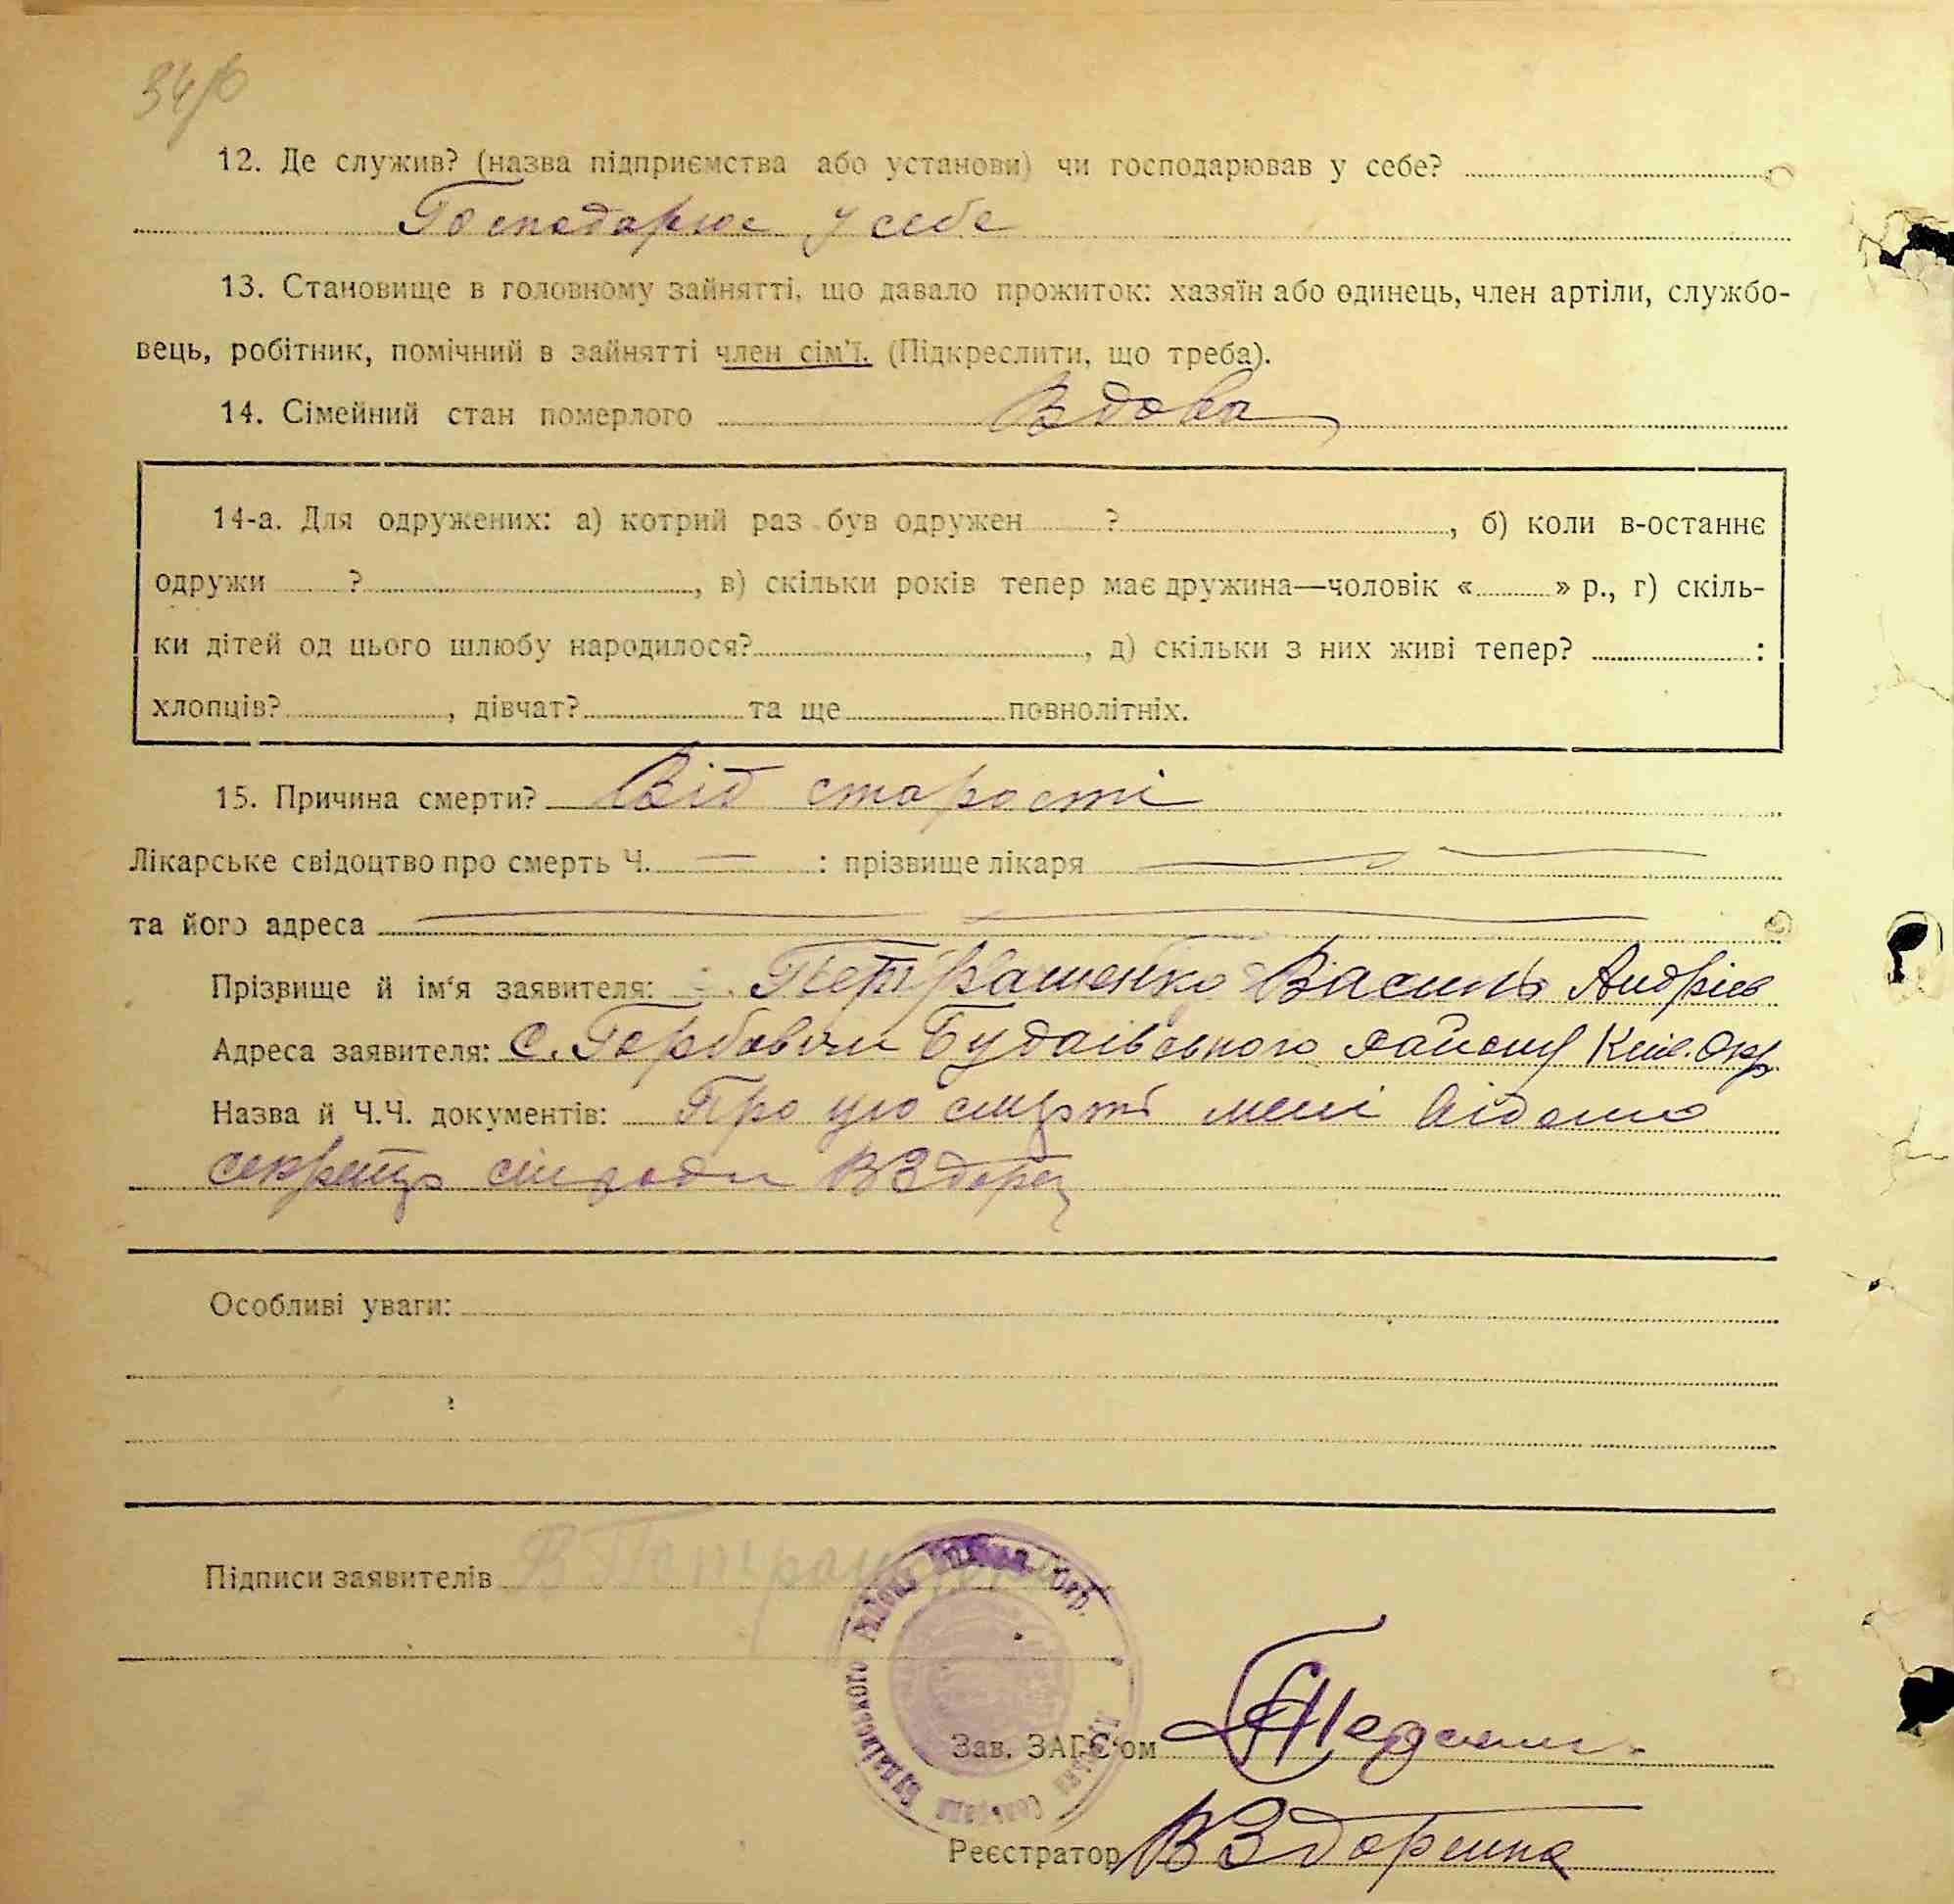 34/6
12. Де служив? (назва підприємства або установи) чи господарював у себе?
Господарює у себе
13. Становище в головному зайнятті, що давало прожиток: хазяїн або одинець, член артіли, службо-
вець, робітник, помічний в зайнятті член сім'ї. (Підкреслити, що треба).
14. Сімейний стан померлого Вдова
14-а. Для одружених: а) котрий раз був одружен ? , б) коли в-останнє
одружи ? , в) скільки років тепер має дружина—чоловік « » р., г) скіль-
ки дітей од цього шлюбу народилося? , д) скільки з них живі тепер? :
хлопців? , дівчат? та ще повнолітніх.
15. Причина смерти? Від старости
Лікарське свідоцтво про смерть Ч. — : прізвище лікаря —
та його адреса —
Прізвище й ім'я заявителя: Петрашенко Василь Андріїв
Адреса заявителя: С. Горбовичи Будаївського району Київ. Окр
Назва й Ч.Ч. документів: Про цю смерть мені відомо
секретар сільради ВЗдорен
Особливі уваги:
Підписи заявителів В Петрашенко
Будаївського Району
Зав. ЗАГС'ом
Реєстратор ВЗдоренко